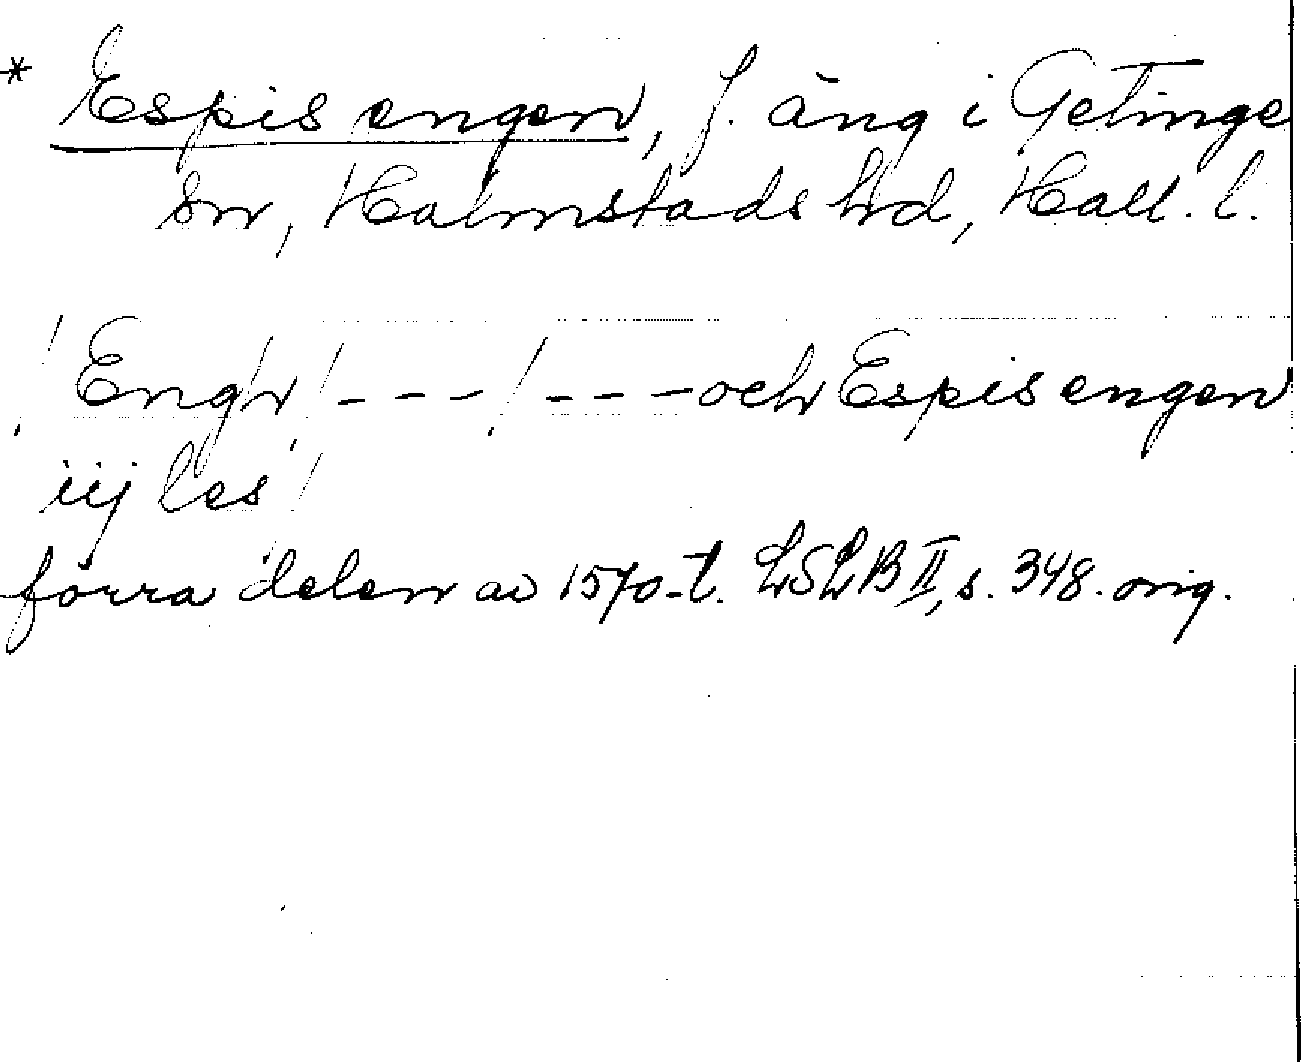 * Espis engen, f. äng i Getinge
sn, Halmstads hd, Hall. l.
/Engh/ --- / --- och Espis engen
iij les/
förra delen av 1570-t. LSLB II, s. 348. orig.